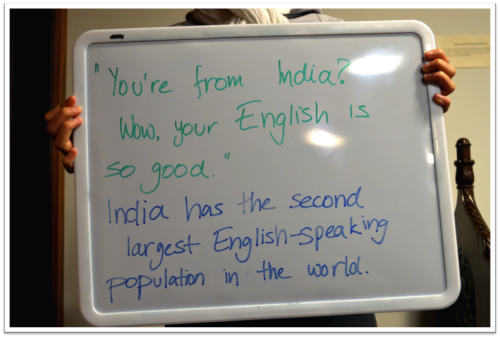 "You're from India?
Wow, your English is
so good."
India has the second
largest English-speaking
population in the world.